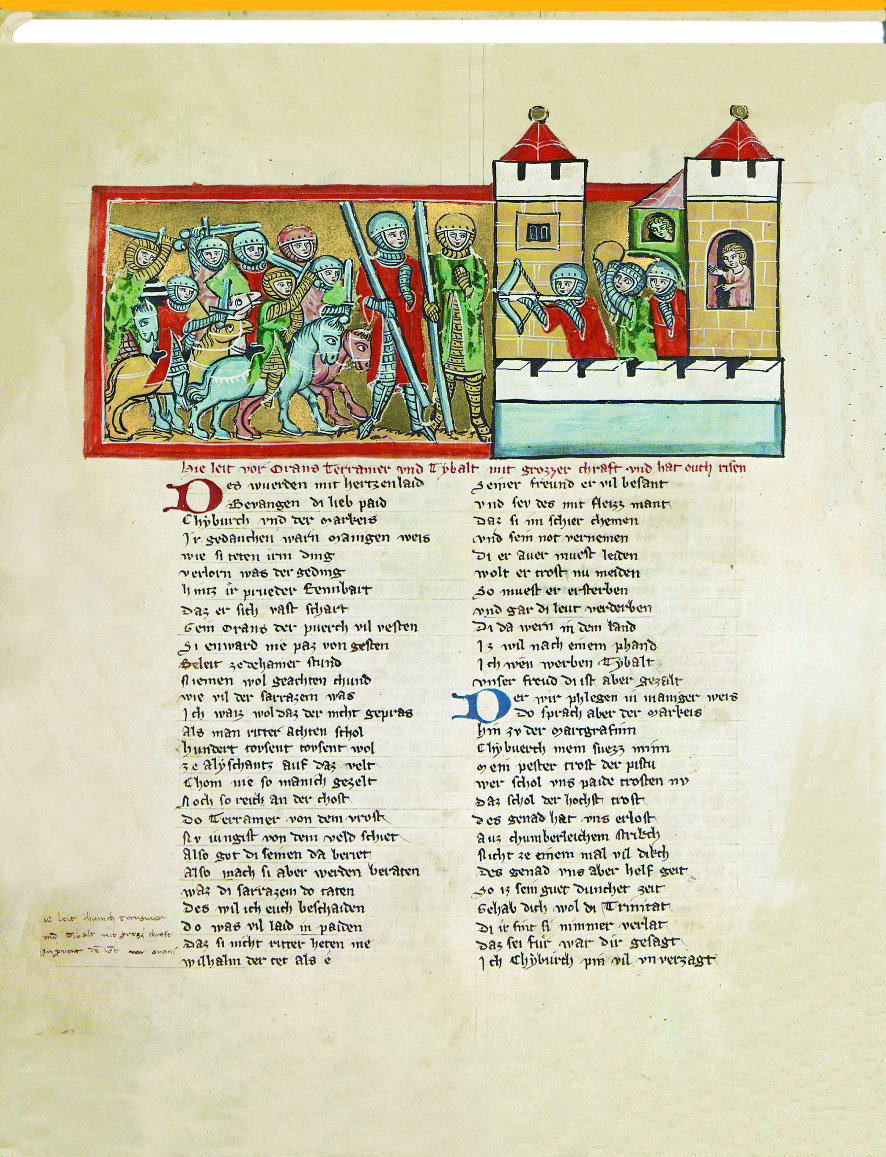 Hie leit vor Orans Terramer vnd Tybalt mit grozzer chraft vnd hat ouch risen
Des wuerden mit hertzenlaid
Bevangen di lieb paid
Chyburch vnd der Markeis
Ir gedauchen warn manigen weis
wie si teten irm ding
verlorn was der geding
hintz ir prueder Rennbart
Daz er sich vast schart
Gein Orans der puerch vil vesten
Si enward nie paz von gesten
Beleit ze dehainer stund
Niemen wol geachten chund
wie vil der sarrazein was
Ich waiz wol daz der nicht gepras
Als man ritter achten schol
hundert tovsent tovsent wol
ze Alyschantz auf daz velt
Chom nie so manich gezelt
Noch so reich an der chost
Do Terramer von dem vrost
Nv iungist von dem veld schiet
Also got di seinen da beriet
Also mach si aber werden beraten
waz di sarrazein do taten
Des wil ich euch beschaiden
Do was vil laid in paiden
Daz si nicht ritter heten me
wilhalm der tet als e
Seiner freund er vil besant
vnd sev des mit fleizz mant
Daz si im schier chemen
vnd sein not vernemen
Di er aver muest leiden
wolt er trost nu meiden
So muest er ersterben
vnd gar di leut verderben
Di da wern in dem land
Iz wil nach einem phand
Ich wen werben Tybalt
vnser freud di ist aber gezalt
Der wir phlegen in maniger weis
Do sprach aber der Markeis
hin zv der margrafinn
Chybuerch mein suezz minn
Mein pester trost der pistu
wer schol vns paide trosten nv
Daz schol der hochst trost
Des genad hat vns erlost
Auz chumberleichem strikch
Nicht ze einem mal vil dikch
Des genad vns aber helf geit
So iz sein guet dunchet zeit
Gehab dich wol di Trinitat
Di ie fuer si nimmer verlat
Daz sei fuer war dir gesagt
Ich Chyburch pin vil vnverzagt
Tybalt mit grozz chraft